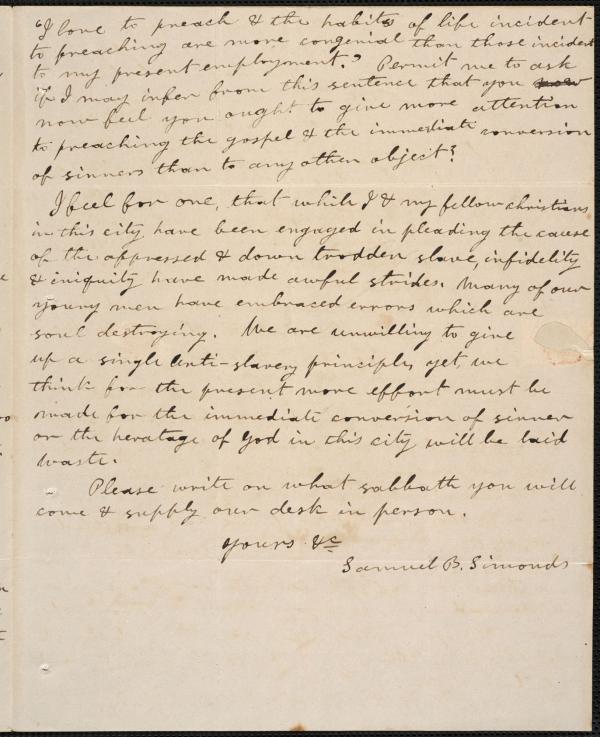 "I love to preach & the habits of life incident
to preaching are more congenial than those incident
to my present employment." Permit me to ask
if I may infer from this sentence that you now
now feel you ought to give more attention
to preaching the gospel & the immediate conversion
of sinners than to any other object?
I feel for one, that while I & my fellow christians
in this city, have been engaged in pleading the cause
of the oppressed & down trodden slave, infidelity
& iniquity have made awful strides. Many of our
young men have embraced errors which are
soul destroying. We are unwilling to give
up a single anti-slavery principle, yet, we
think for the present more effort must be
made for the immediate conversion of sinner
or the heratage of God in this city will be laid
waste.
Please write on what sabbath you will
come & supply our desk in person.
Yours &c
Samuel B. Simonds